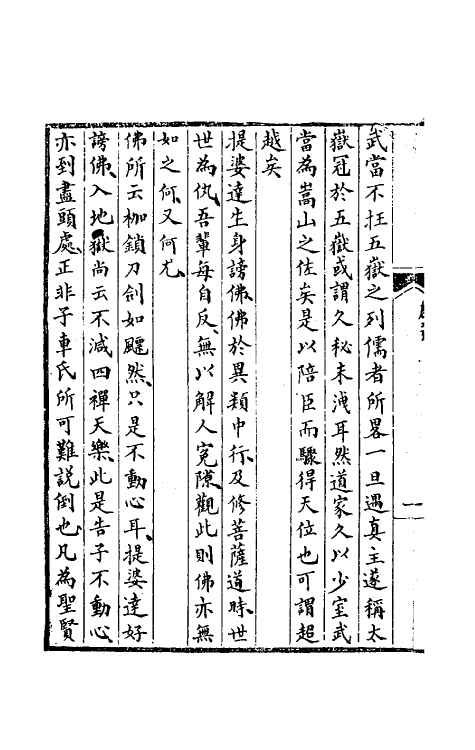 武當不在五嶽之列儒者所畧一旦遇真主遂稱太
嶽冠於五嶽或謂久秘未洩耳然道家久以少室武
當為嵩山之佐矣是以陪臣而驟得天位也可謂超
越矣
提婆達生身謗佛佛於異類中行及修菩薩道時世
世為仇吾輩每自反無以解人寃隙觀此則佛亦無
如之何又何尤
佛所云枷鎖刀劍如飃然只是不動心耳提婆達好
謗佛入地獄尚云不減四禪天樂此是告子不動心
亦到盡頭處正非子車氏所可難說倒也凡為聖賢